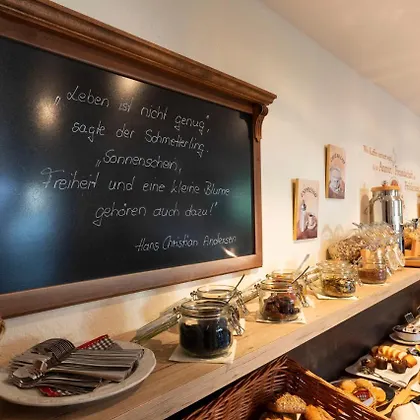 „Leben ist nicht genug",
sagte der Schmetterling
„Sonnenschein,
Freiheit und eine kleine Blume
gehören auch dazu!"
Hans Christian Andersen